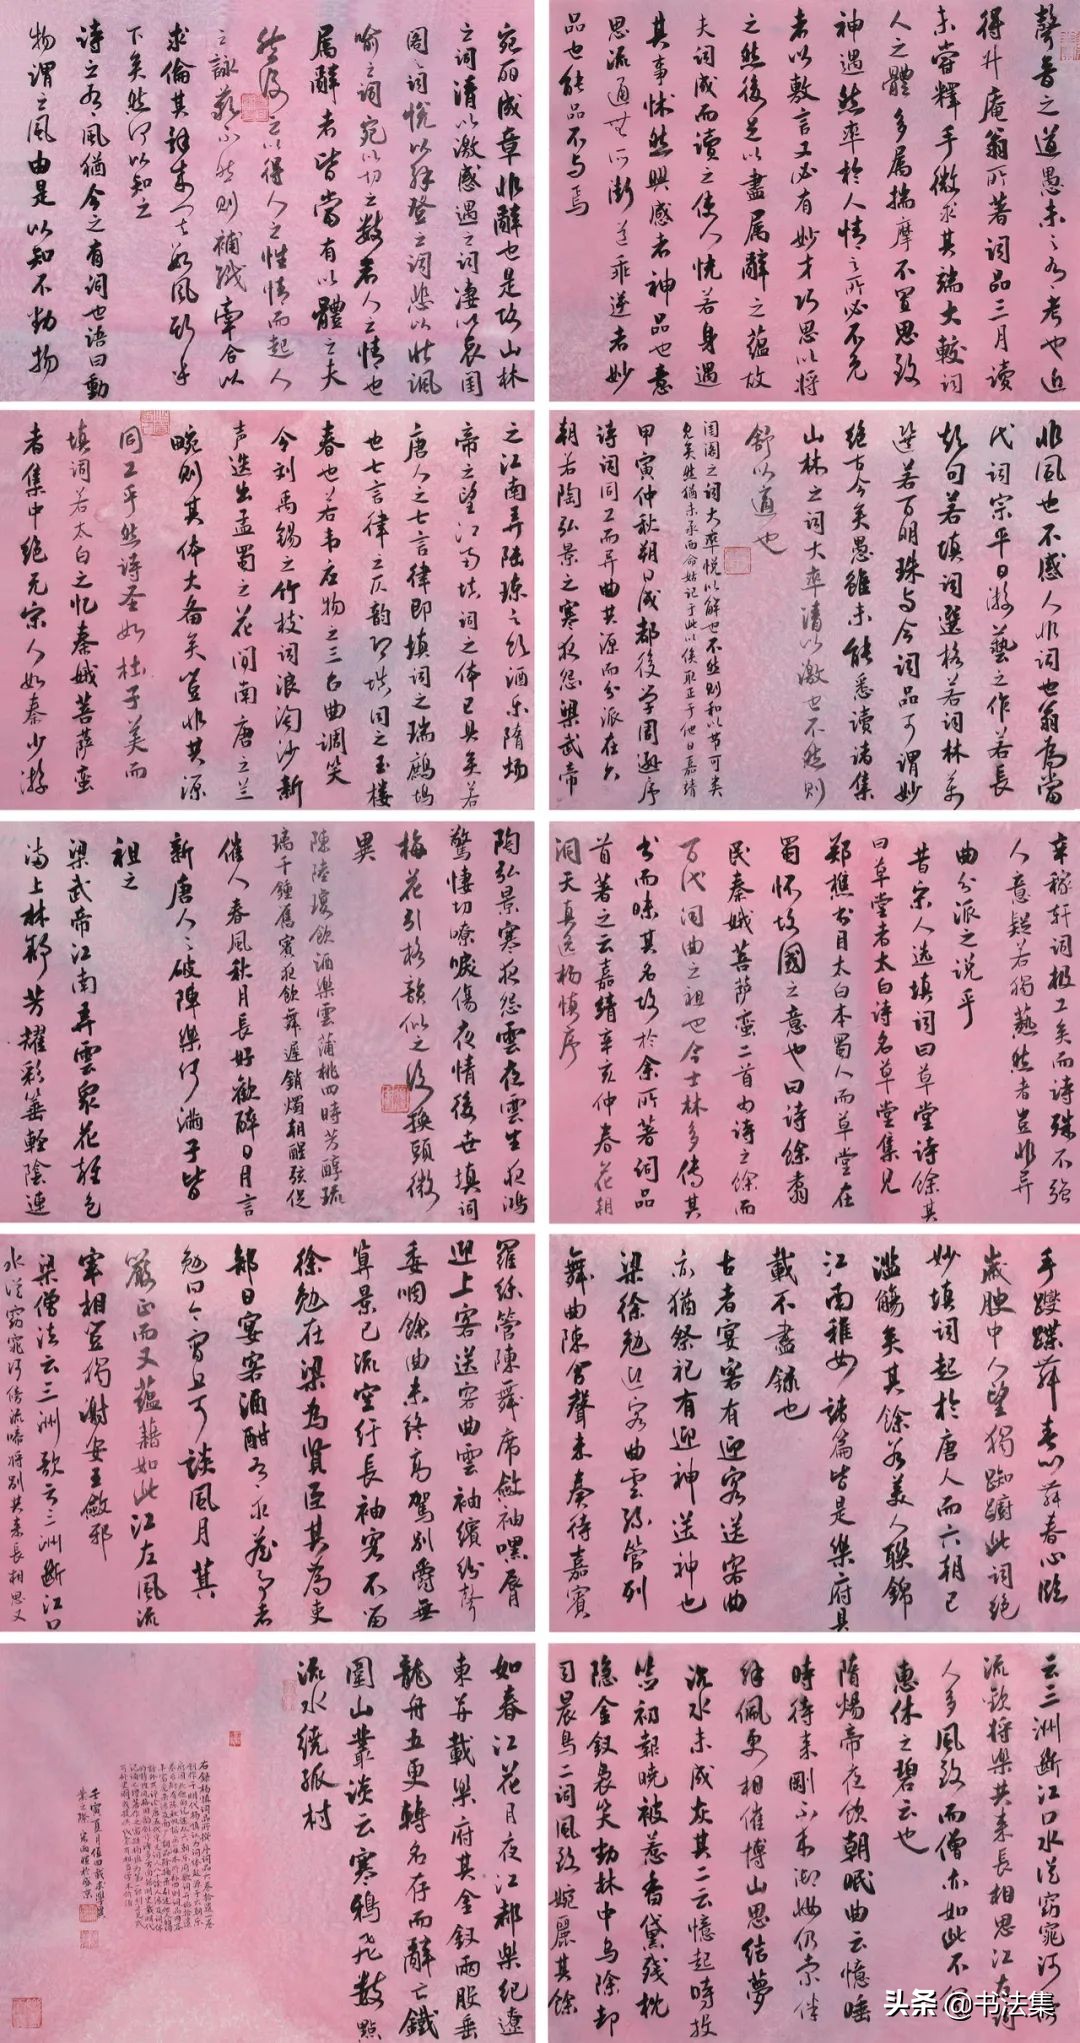 聲音之道愚未之有考也近
得升庵翁所著词品三月读
未尝释手微求其端大較词
人之體多属揣摩不置思致
神遇然率於人情之所必不免
者以敷言又必有妙才巧思以将
之然後足以盡属辭之蕴故
夫词成而读之使人恍若身遇
其事怵然興感者神品也意
思流通無所渐乖逆者妙
品也能品不与焉
宛丽成章非辭也是故山林
之词清以激感遇之词凄以哀闺
阁之词悦以解登之词悲以壮讽
喻之词宛以切之数者人之情也
属辭者皆當有以體之夫
然後足以得人之性情而起人
之詠歎不然则補綴牽合以
求倫其辞
下矣然何以知之
诗之有風猶今之有词也语曰動
物谓之風由是以知不動物
非風也不感人非词也翁為當
代词宗平日游藝之作若長
短句若填词選格若词林萬
選若百明珠与今词品可谓妙
绝古今矣愚雖未能悉读诸集
山林之词大率清以激也不然则
舒以道也
闺阁之词大率悦以解也不然则和以节可类
见矣然猶未承面命姑记于此以俟取正于他日嘉靖
甲寅仲秋朔日成都後学周逊序
诗词同工而异曲共源而分派在六
朝若陶弘景之寒夜怨梁武帝
之江南弄陆琼之饮酒乐隋炀
帝之望江南填词之体已具矣若
唐人之七言律即填词之瑞鷓鴣
也七言律之仄韵即填词之玉楼
春也若韦应物之三台曲调笑
令刘禹锡之竹枝词浪淘沙新
声迭出孟蜀之花间南唐之兰
畹则其体大备矣岂非共源
同工乎然诗圣如杜子美而
填词若太白之忆秦娥菩萨蛮
者集中绝无宋人如秦少游
辛稼轩词极工矣而诗殊不强
人意疑若獨藝然者豈非异
曲分派之说乎
昔宋人选填词曰草堂诗餘其
曰草堂者太白诗名草堂集見
郑樵书目太白本蜀人而草堂在
蜀怀故國之意也曰诗餘者
民秦娥菩萨蛮二首为诗之餘而
百代词曲之祖也今士林多傳其
书而昧其名故於余所著词品
首著之云嘉靖辛亥仲春花朝
洞天真逸杨慎序
陶弘景寒夜怨雲夜雲生夜鸿
驚悽切嘹唳傷夜情後世填词
梅花引格韻似之後换頭微
異
陳陸瓊飲酒樂雲蒲桃四時芳醇琉
璃千鍾舊賓夜飲舞遲銷燭朝醒弦促
催人春風秋月長好歡醉日月言
新唐人之破陣樂何滿子皆
祖之
梁武帝江南弄雲眾花雜色
滿上林舒芳耀彩垂輕陰連
手躞蹀舞春心舞春心臨
歲腴中人望獨踟躕此词绝
妙填词起於唐人而六朝已
濫觴矣其餘若美人聯錦
江南稚女諸篇皆是樂府具
載不盡錄也
古者宴客有迎客送客曲
亦猶祭祀有迎神送神也
梁徐勉迎客曲雲絲管列
舞曲陳含聲未奏待嘉賓
羅絲管陳舞席斂袖嘿唇
迎上客送客曲雲袖繽紛聲
委咽餘曲未终高駕别爵無
算景已流空紆長袖客不留
徐勉在梁為賢臣其為吏
部日宴客酒酣有求詹事者
勉曰今宵且可談風月其
嚴正而又蘊藉如此江左風流
宰相豈獨謝安王斂邪
梁僧法云三洲歌云三洲断江口
水從窈窕河傍流啼将别共来長相思又
云三洲断江口水從窈窕河傍
流歡将樂共来長相思江左诗
人多風致而僧亦如此不独
惠休之碧云也
隋煬帝夜饮朝眠曲云憶睡
時待来剛不来卸妝仍索伴
解佩更相催博山思结夢
沉水未成灰其二云憶起時投
签初報曉被惹香黛残枕
隐金釵裊笑動林中烏除却
司晨鳥二词風致婉麗其餘
如春江花月夜江都樂纪遼
東并載樂府其金釵兩股垂
龍舟五更轉名存而辭亡鐵
圍山叢谈云寒鴉飛数點
流水绕孤村
头条 @书法集